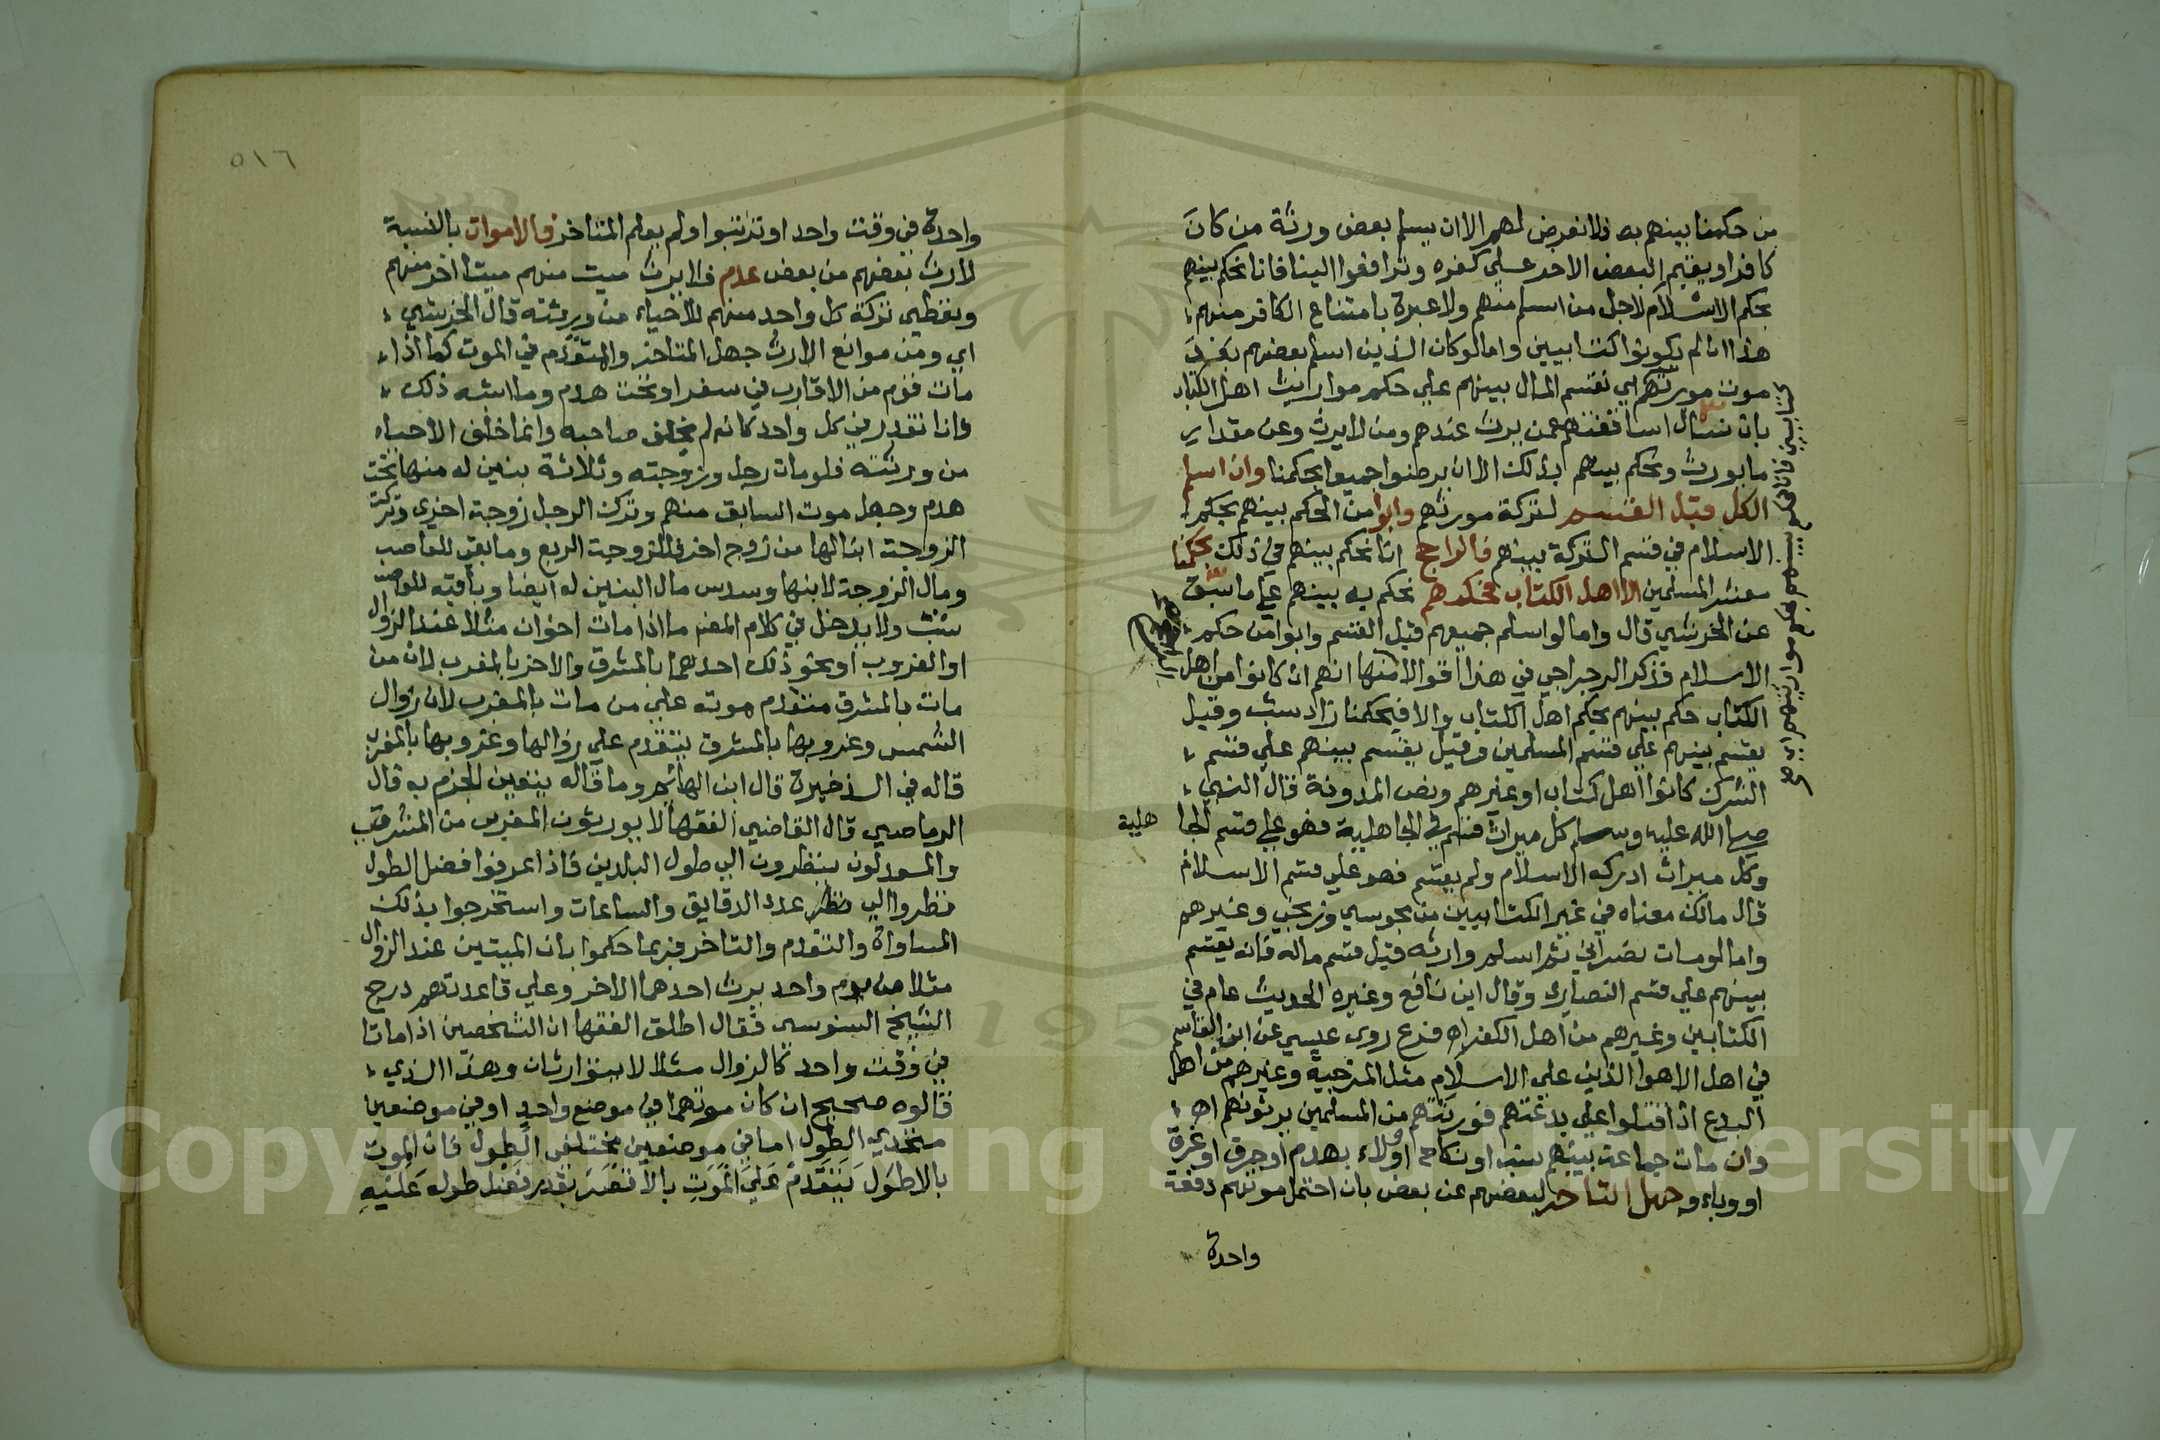 من حكمنا بينهم به فلا نعرض لهم الا ان يسلم بعض ورثة من كان
كافرا ويقيم البعض الاخر علي كفره وترافعوا الينا فانا نحكم بينهم
بحكم الاسلام لاجل من اسلم منهم ولا عبرة بامتناع الكافر منهم
هذا ان لم يكونوا كتابيين واما لو كان الذين اسلم بعضهم بعد
موت مورثهم اي نقسم المال بينهم علي حكم مواريث اهل الكتاب
بان نسال اساقفتهم عمن يرث عندهم ومن لا يرث وعن مقدار
ما يورث ونحكم بينهم بذلك الا ان يرضوا جميعا بحكمنا وان اسلم
الكل قبل القسم لتركة مورثهم وابوا من الحكم بينهم بحكم
الاسلام في قسم التركة بينهم فالراجح انا نحكم بينهم في ذلك بحكمنا
معشر المسلمين الا اهل الكتاب فبحكمهم نحكم به بينهم علي ما سبق
عن الخرشي قال واما لو اسلم جميعهم قبل القسم وابوا من حكم
الاسلام فذكر الرجراجي في هذا اقوالا منها انهم ان كانوا من اهل
الكتاب حكم بينهم بحكم اهل الكتاب والا فبحكمنا زاد شب وقيل
يقسم بينهم علي قسم المسلمين وقيل يقسم بينهم علي قسم
الشرك كانوا اهل كتاب او غيرهم ونص المدونة قال النبي
صلي الله عليه وسلم كل ميراث قسم في الجاهلية فهو علي قسم الجا
هلية
وكل ميراث ادركه الاسلام ولم يقسم فهو علي قسم الاسلام
قال مالك معناه في غير الكتابيين من مجوسي وزنجي وغيرهم
واما لو مات نصراني ثم اسلم وارثه قبل قسم ماله فانه يقسم
بينهم علي قسم النصاري وقال ابن نافع وغيره الحديث عام في
الكتابين وغيرهم من اهل الكفر اه فرع روي عيسي عن ابن القاسم
في اهل الاهوا الذين علي الاسلام مثل المرجية وغيرهم من اهل
البدع اذا قتلوا علي بدعتهم فورثتهم من المسلمين يرثونهم اه
وان مات جماعة بينهم نسب او نكاح او ولاء بهدم او حرق او غرق
او وباء وجهل التاخر لبعضهم عن بعض بان احتمل موتهم دفعة
واحدة
كتابيين فانا نحكم بينهم بحكم مواريثهم
٥١٦
واحدة في وقت واحد او ترتبوا ولم يعلم المتاخر فالاموات بالنسبة
لارث بعضهم من بعض عدم فلا يرث ميت منهم ميتا اخر منهم
ويعطي تركة كل واحد منهم للاحياء من ورثته قال الخرشي
اي ومن موانع الارث جهل المتاخر والمتقدم في الموت كما اذا
مات قوم من الاقارب في سفر او تحت هدم وما اشبه ذلك
فانا نقدر في كل واحد كانه لم يخلف صاحبه وانما خلف الاحياء
من ورثته فلو مات رجل وزوجته وثلاثة بنين له منها تحت
هدم وجهل موت السابق منهم وترك الرجل زوجة اخري وتركت
الزوجة ابنا لها من زوج اخر فللزوجة الربع وما بقي للعاصب
ومال الزوجة لابنها وسدس مال البنين له ايضا وباقيه للعاصب
شب ولا يدخل في كلام المص ما اذا مات اخوان مثلا عند الزوال
او الغروب او نحو ذلك احدهما بالمشرق والاخر بالمغرب لان من
مات بالمشرق متقدم موته علي من مات بالمغرب لان زوال
الشمس وغروبها بالمشرق يتقدم علي زوالها وغروبها بالمغرب
قاله في الذخيرة قال ابن الهائم وما قاله يتعين الجزم به قال
الرماصي قال القاضي الفقها لا يورثون المغربي من المشرقي
والمعدلون ينظرون الي طول البلدين فاذا عرفوا فضل الطول
نظروا الي نظر عدد الدقايق والساعات واستخرجوا بذلك
المساواة والتقدم والتاخر فربما حكموا بان الميتين عند الزوال
مثلا من يوم واحد يرث احدهما الاخر وعلي قاعدتهم درج
الشيخ السنوسي فقال اطلق الفقها ان الشخصين اذا ماتا
في وقت واحد كالزوال مثلا لا يتوارثان وهذا الذي
قالوه صحيح ان كان موتهما في موضع واحد او في موضعين
متحدي الطول اما في موضعين مختلفي الطول فان الموت
بالاطول يتقدم علي الموت بالاقصر بقدر فضل طوله عليه
Copyright © King Saud University
195